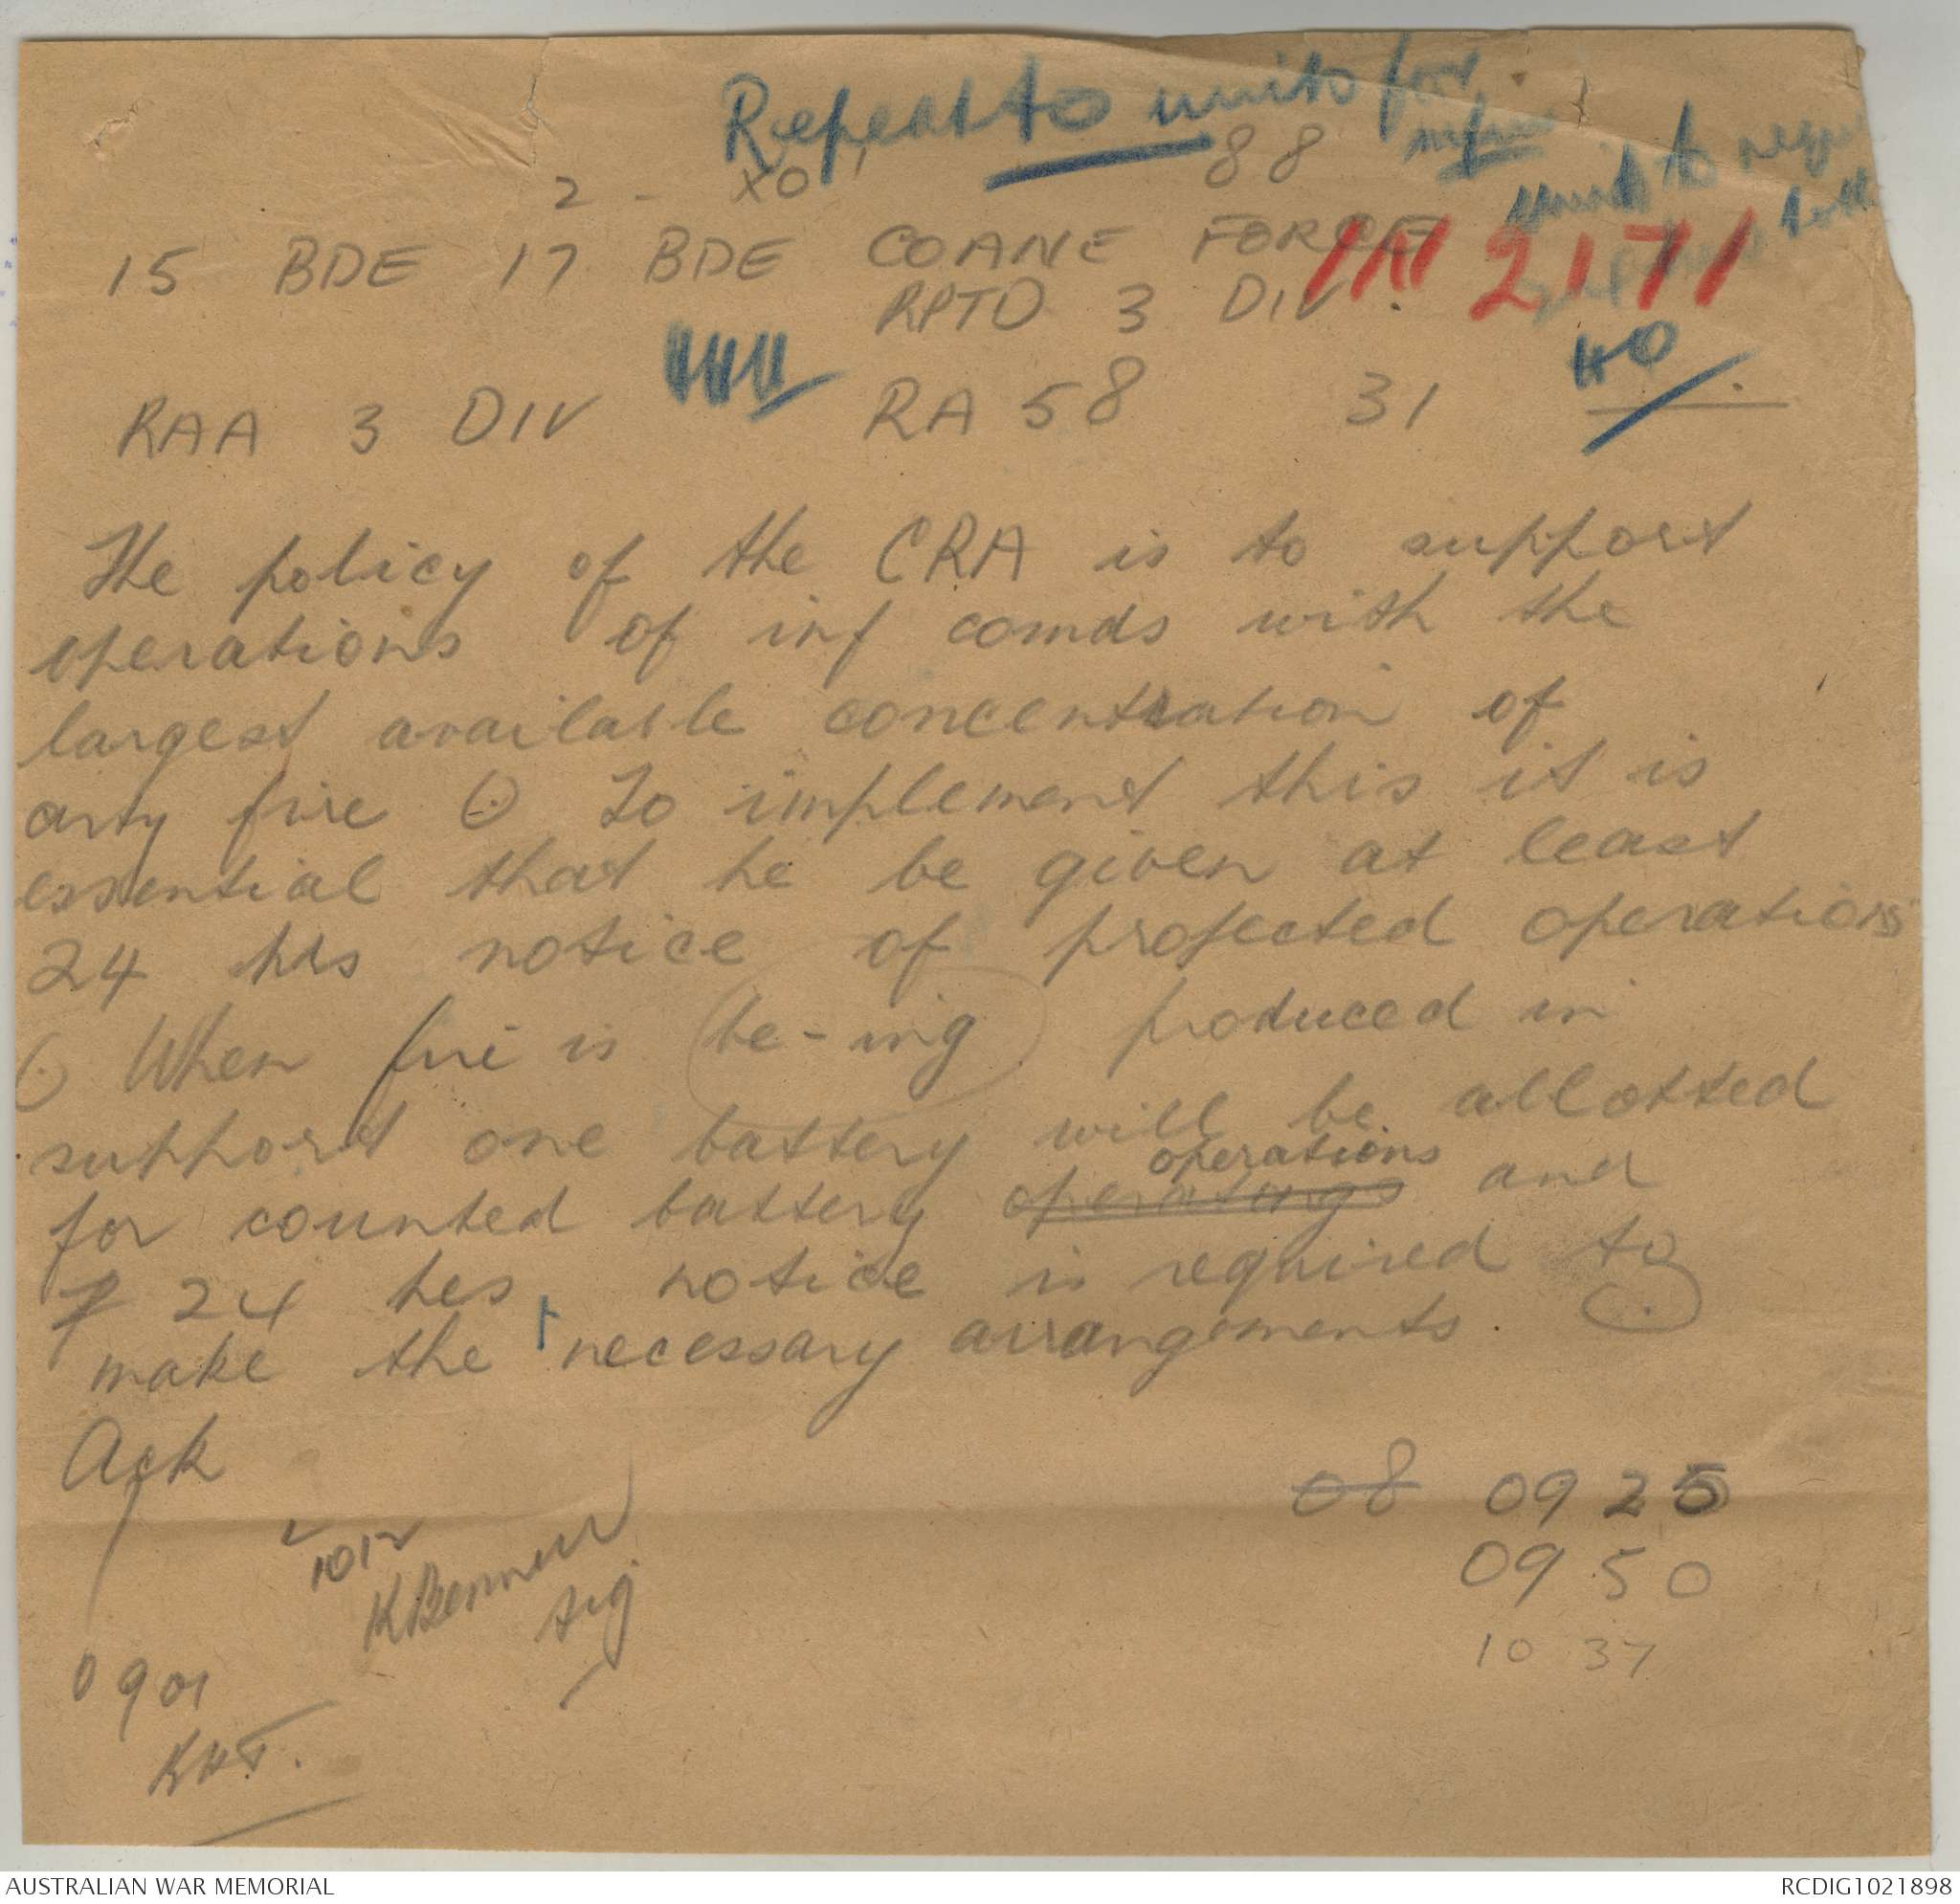 Repeat to units for
2 - XO 88
units to
15 BDE 17 BDE COANE FORCE IN 2171
RPTD 3 DIV.
RAA 3 DIV RA 58 31
The policy of the CRA is to support
operations of inf comds with the
largest available concentration of
arty fire (.) To implement this it is
essential that he be given at least
24 hrs notice of projected operations
(.) When fire is be-ing produced in
support one battery will be allotted
operations
for counted battery operatings and
24 hrs notice is required to
make the necessary arrangements. (.)
Ack
08 0925
1012
0950
Sig
1037
0901
KHT.
AUSTRALIAN WAR MEMORIAL RCDIG1021898